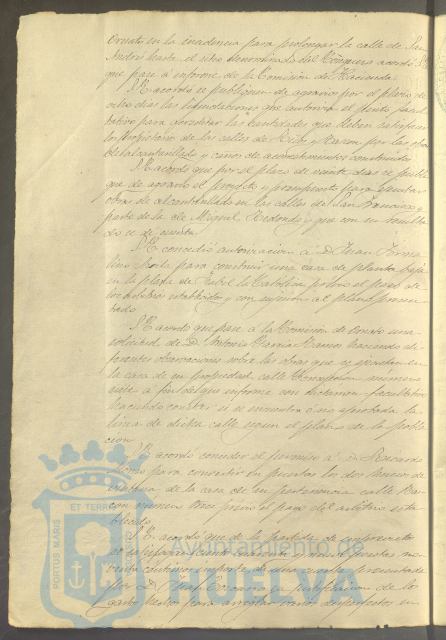 Ornato en la incidencia para prolongar la calle de San
Andrés hasta el sitio denominado del
que pase á informe de la Comisión de Hacienda.
Se acordó se publiquen de agravios por el plazo de
ocho dias las liquidaciones que
para las cantidades que deben satisfacer
los propietarios de las calles de Rico y Rascon por las obras
de alcantarillado y caños de acometimientos construidos.
Se acordó que por el plazo de veinte dias se publi-
que de agravio el proyecto y presupuesto para ejecutar
obras de alcantarillado en las calles de San Francisco y
parte de la de Miguel Redondo y que con su resulta-
do se dé cuenta.
Se concedió autorización á D. Juan
para construir una casa de planta baja
en la plaza de Isabel la Católica previo el pago de
los arbitrios establecidos y con sujeción al plano presen-
tado.
Se acordó que pase á la Comisión de Ornato una
solicitud de D. Antonio García Ramos haciendo di-
ferentes observaciones sobre las obras que se ejecutan en
la casa de su propiedad calle Concepción número
siete á fin de que informe con dictamen facultativo
haciendo constar si se encuentra ó no aprobada la
línea de dicha calle segun el plano de la pobla-
cion.
Se acordó conceder el permiso á D. Ricardo
para convertir en puertas los dos huecos de
ventana de la casa de su pertenencia calle
con número tres previo el pago del arbitrio esta-
blecido.
Se acordó que de la partida de imprevistos
se satisfagan ciento
céntimos importe de una cuenta presentada
por D. Juan en justificacion de los
gastos hechos para arreglar varios desperfectos en
PORTUS MARIS ET TERRÆ
Ayuntamiento de
HUELVA